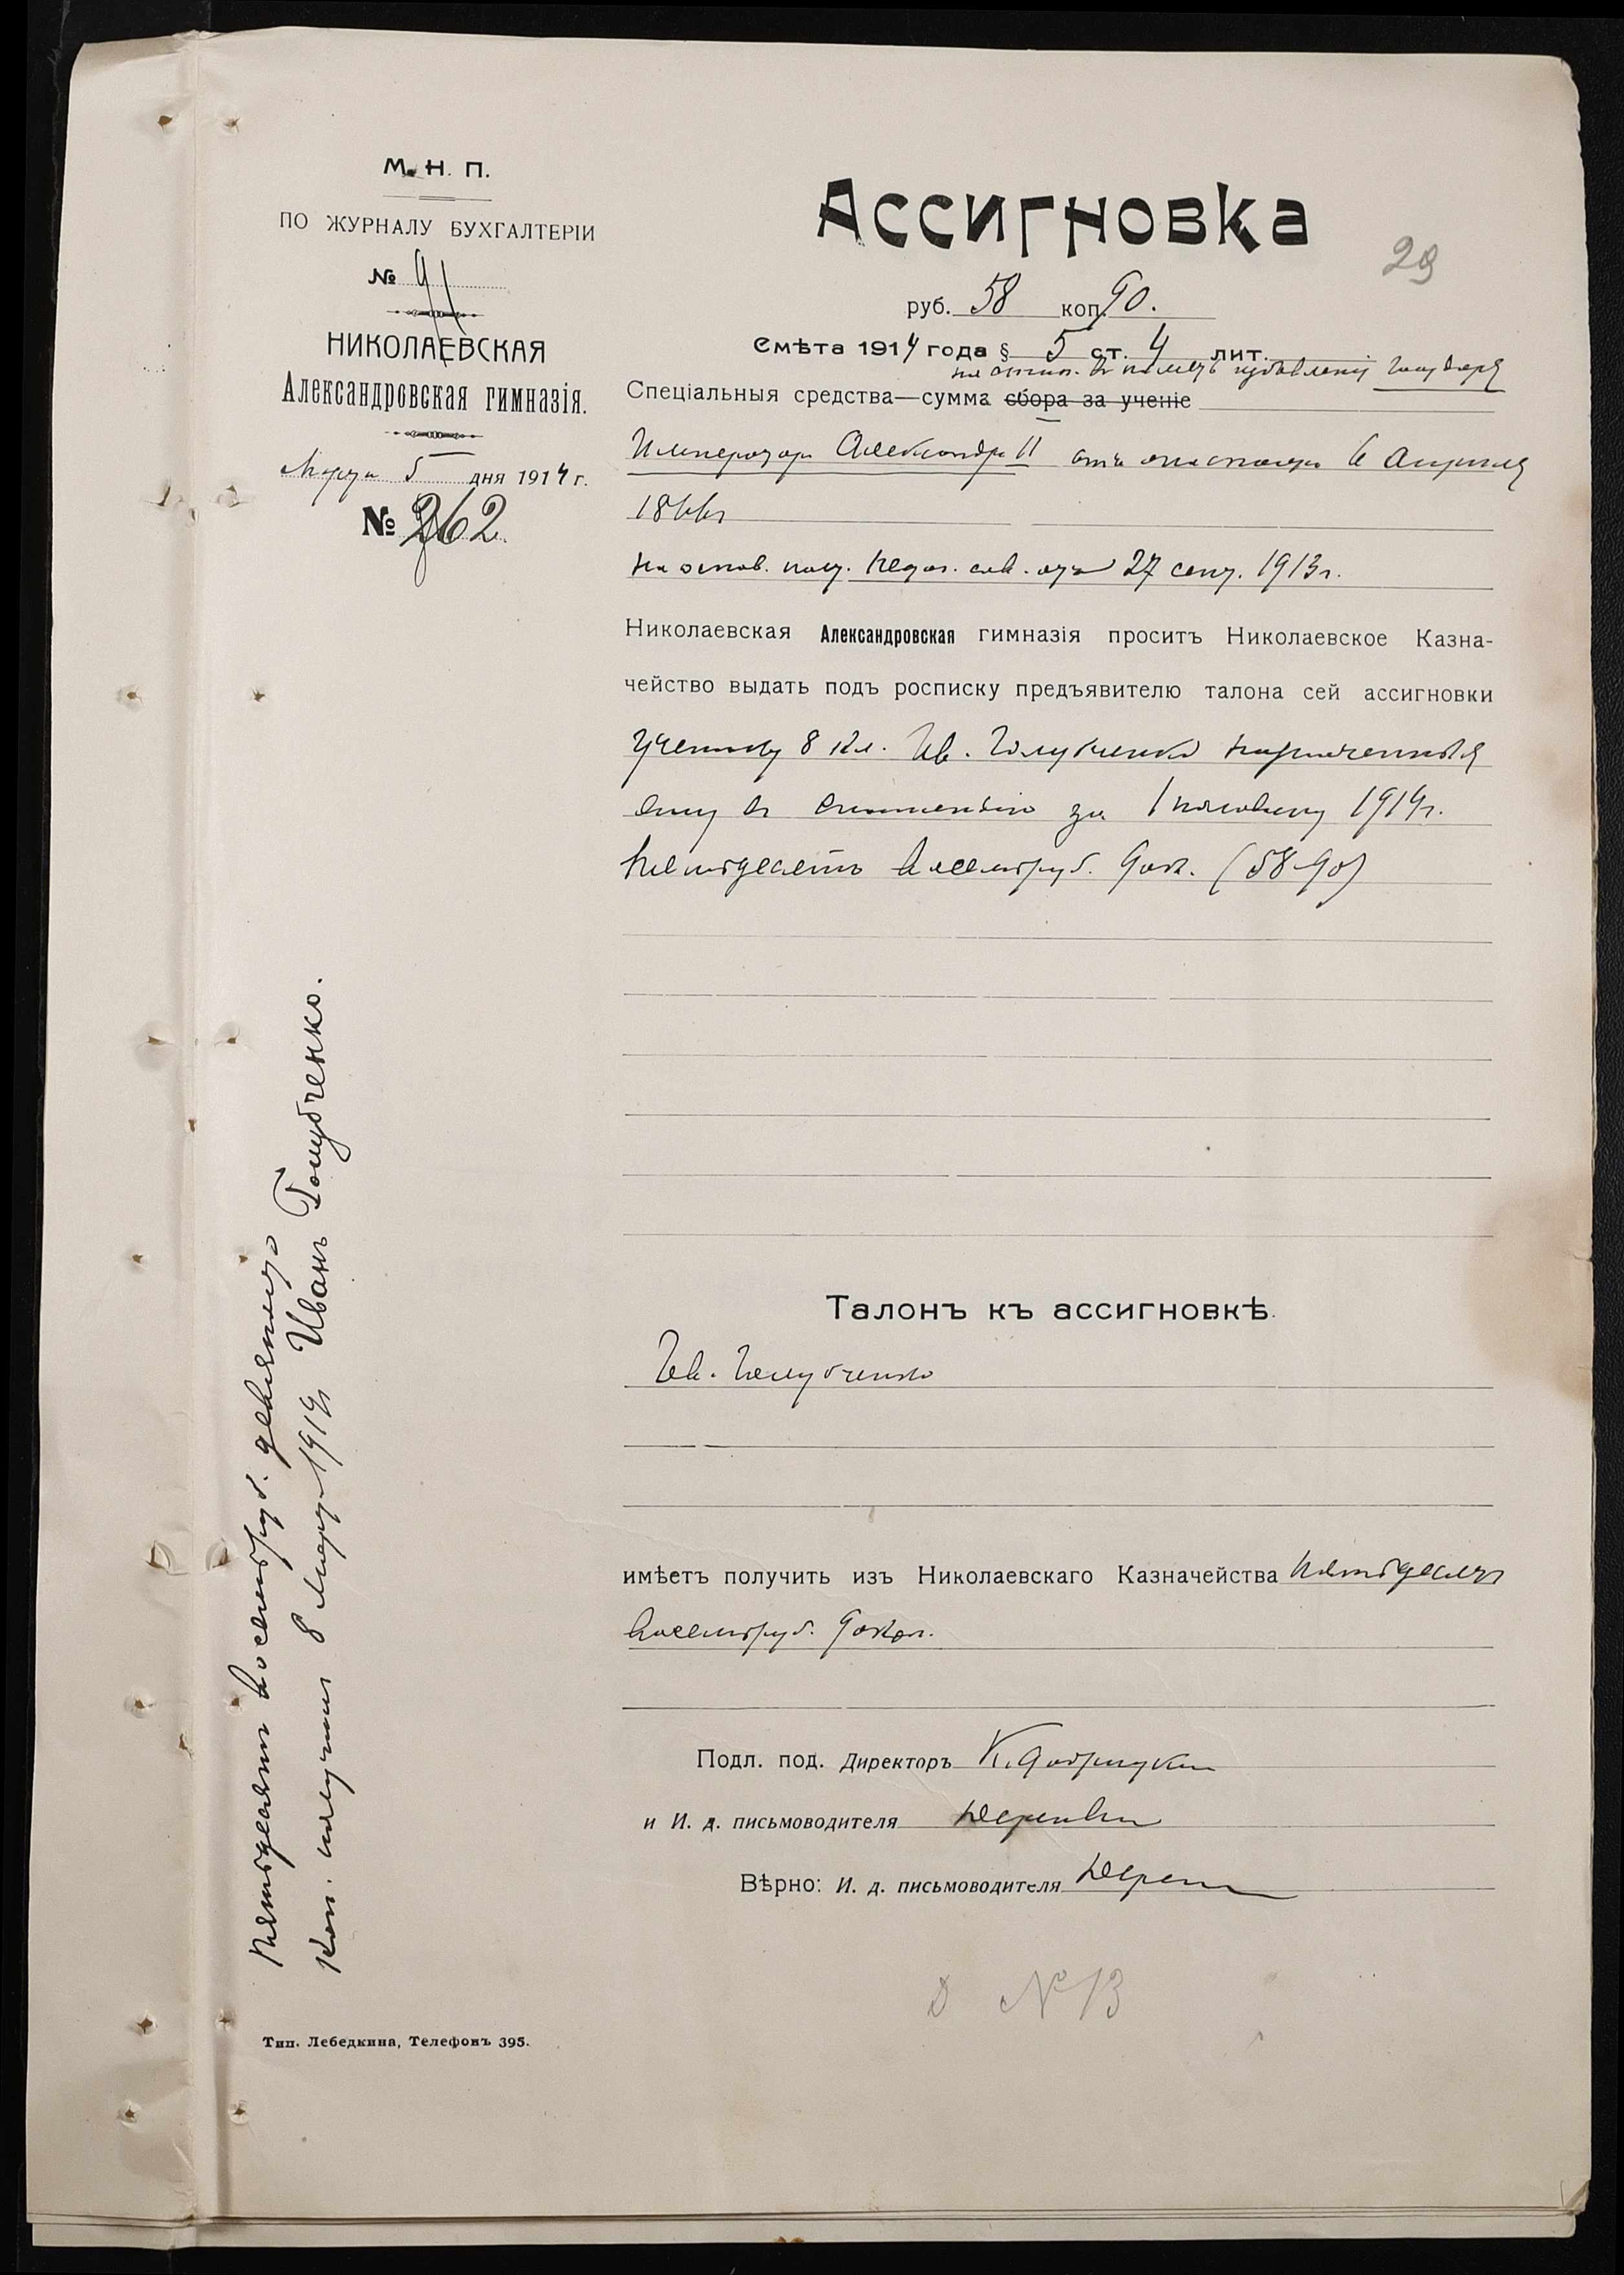 М. Н. П.
ПО ЖУРНАЛУ БУХГАЛТЕРІИ
№ 91
НИКОЛАЕВСКАЯ
Александровская гимназія.
Марта 5 дня 1914 г.
№ 262
Ассигновка
29
руб. 58 коп. 90.
Смѣта 1914 года § 5 ст. 4 лит.
на стип. въ память избавленія Государя
Спеціальныя средства—сумма сбора за ученіе
Императора Александра II отъ опасности 4 Апрѣля
1866г
на основ. пост. Педаг. сов. отъ 27 сент. 1913 г.
Николаевская Александровская гимназія проситъ Николаевское Казна-
чейство выдать подъ росписку предъявителю талона сей ассигновки
ученику 8 кл. Ив. Голубченко назначенныя
ему въ стипендію за 1 половину 1914г.
пятьдесятъ восемь руб. 90 к. (58-90)
Талонъ къ ассигновкѣ.
Ив. Голубченко
имѣетъ получить изъ Николаевскаго Казначейства пятьдесятъ
восемь руб. 90 коп.
Подл. под. Директоръ К.
и И. д. письмоводителя
Вѣрно: И. д. письмоводителя
№ 13
Пятьдесятъ восемь руб. девяносто
коп. получилъ 8 Марта 1914г Иванъ Голубченко.
Тип. Лебедкина, Телефонъ 395.